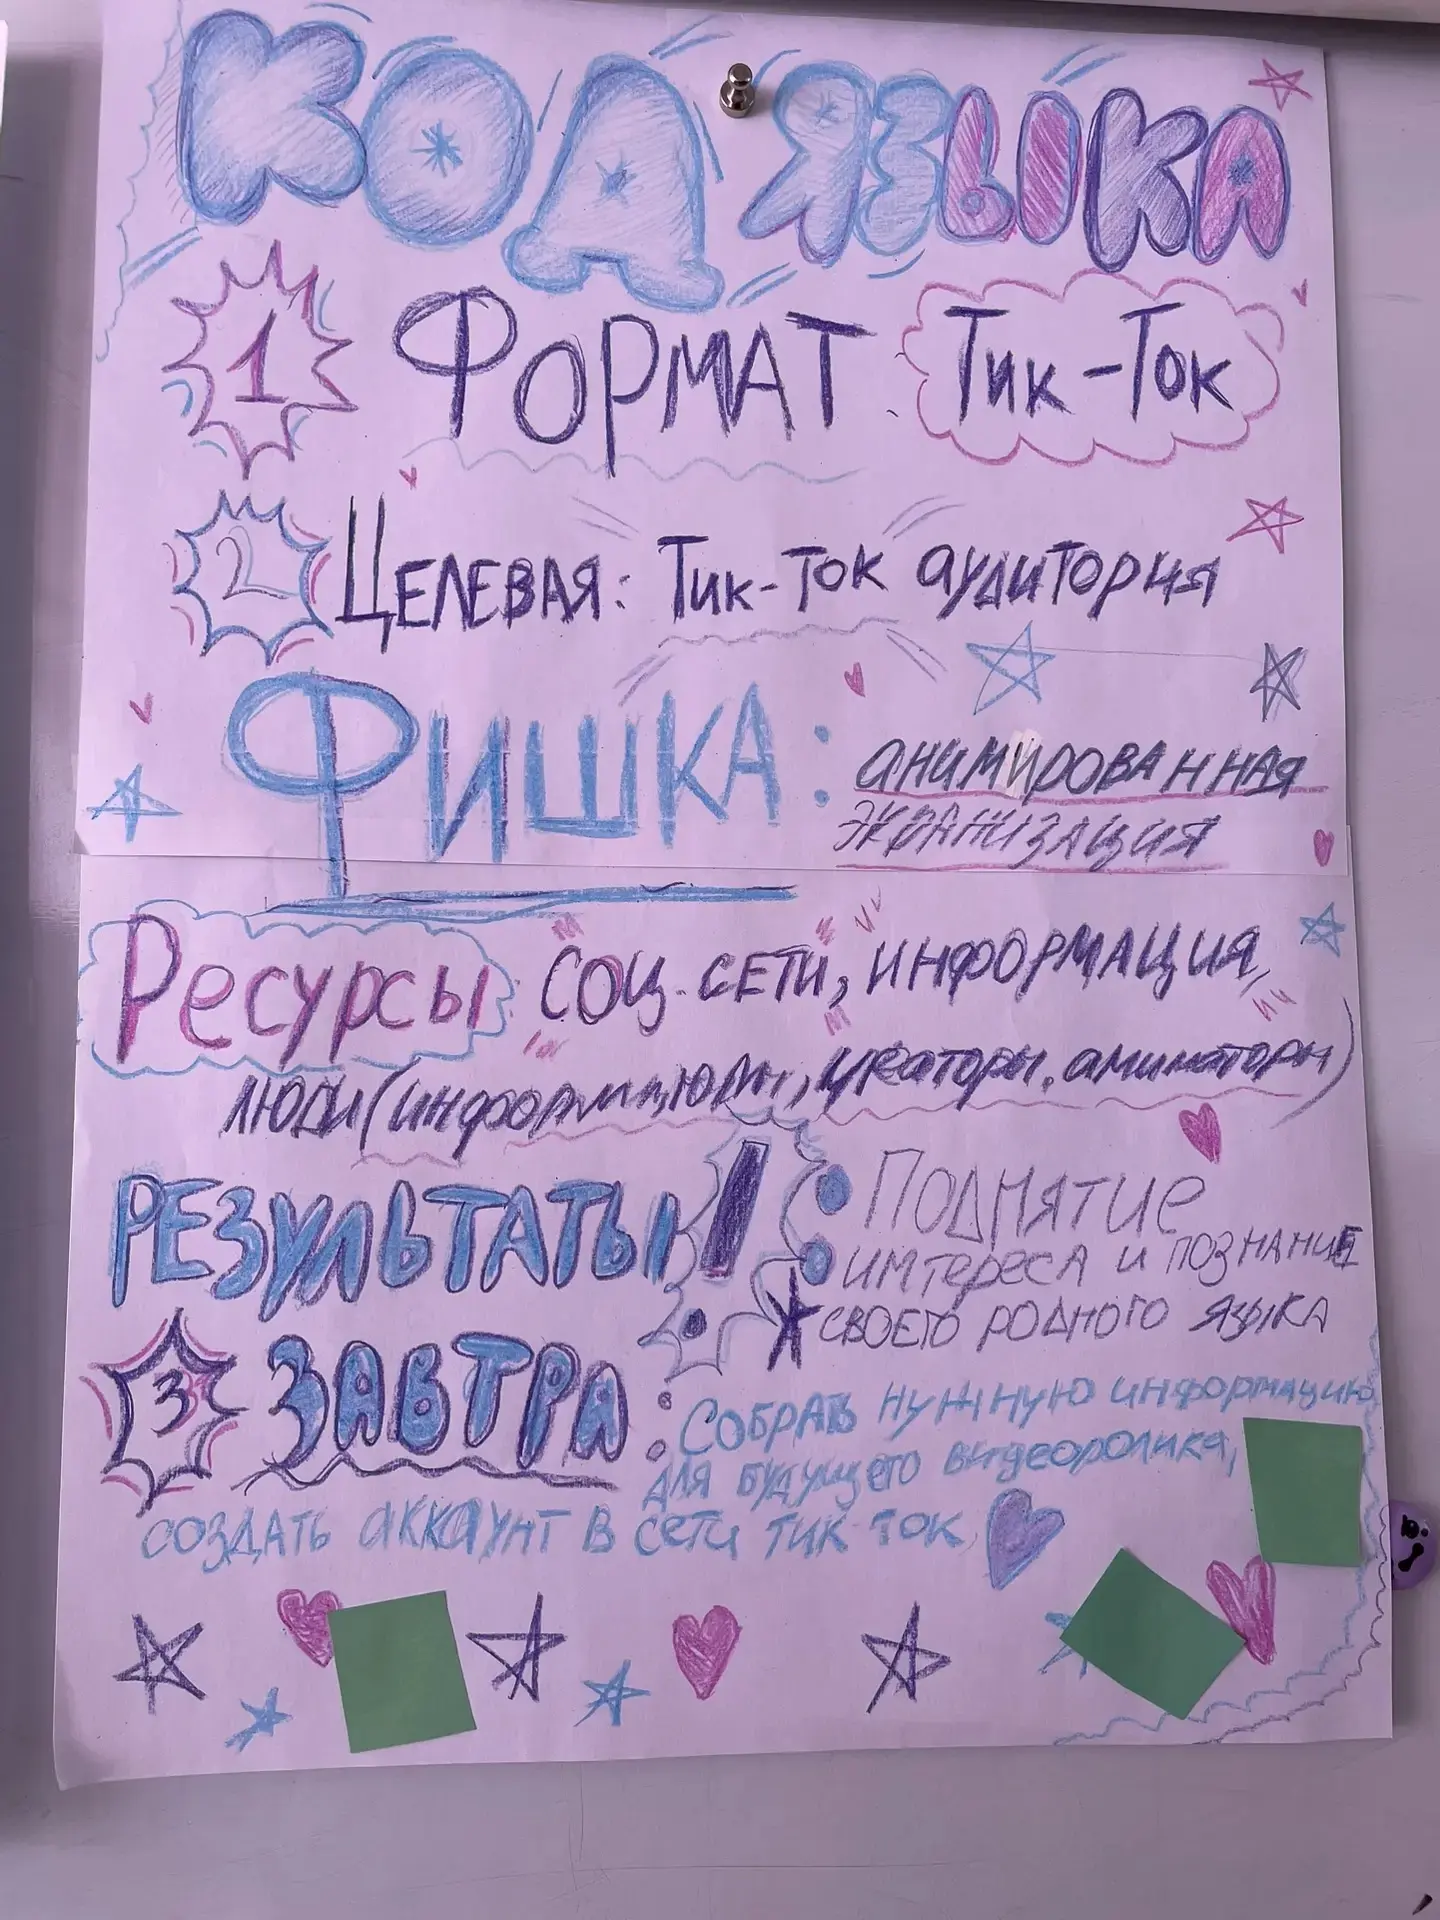 КОД ЯЗЫКА
1 ФОРМАТ Тик-Ток
2 ЦЕЛЕВАЯ: Тик-Ток аудитория
ФИШКА: анимированная
экранизация
Ресурсы соц. сети, информация,
люди (креаторы, аниматоры)
РЕЗУЛЬТАТЫ! Поднятие
интереса и познание
своего родного языка
3 ЗАВТРА: Собрать нужную информацию
для будущего видеоролика,
создать аккаунт в сети тик ток